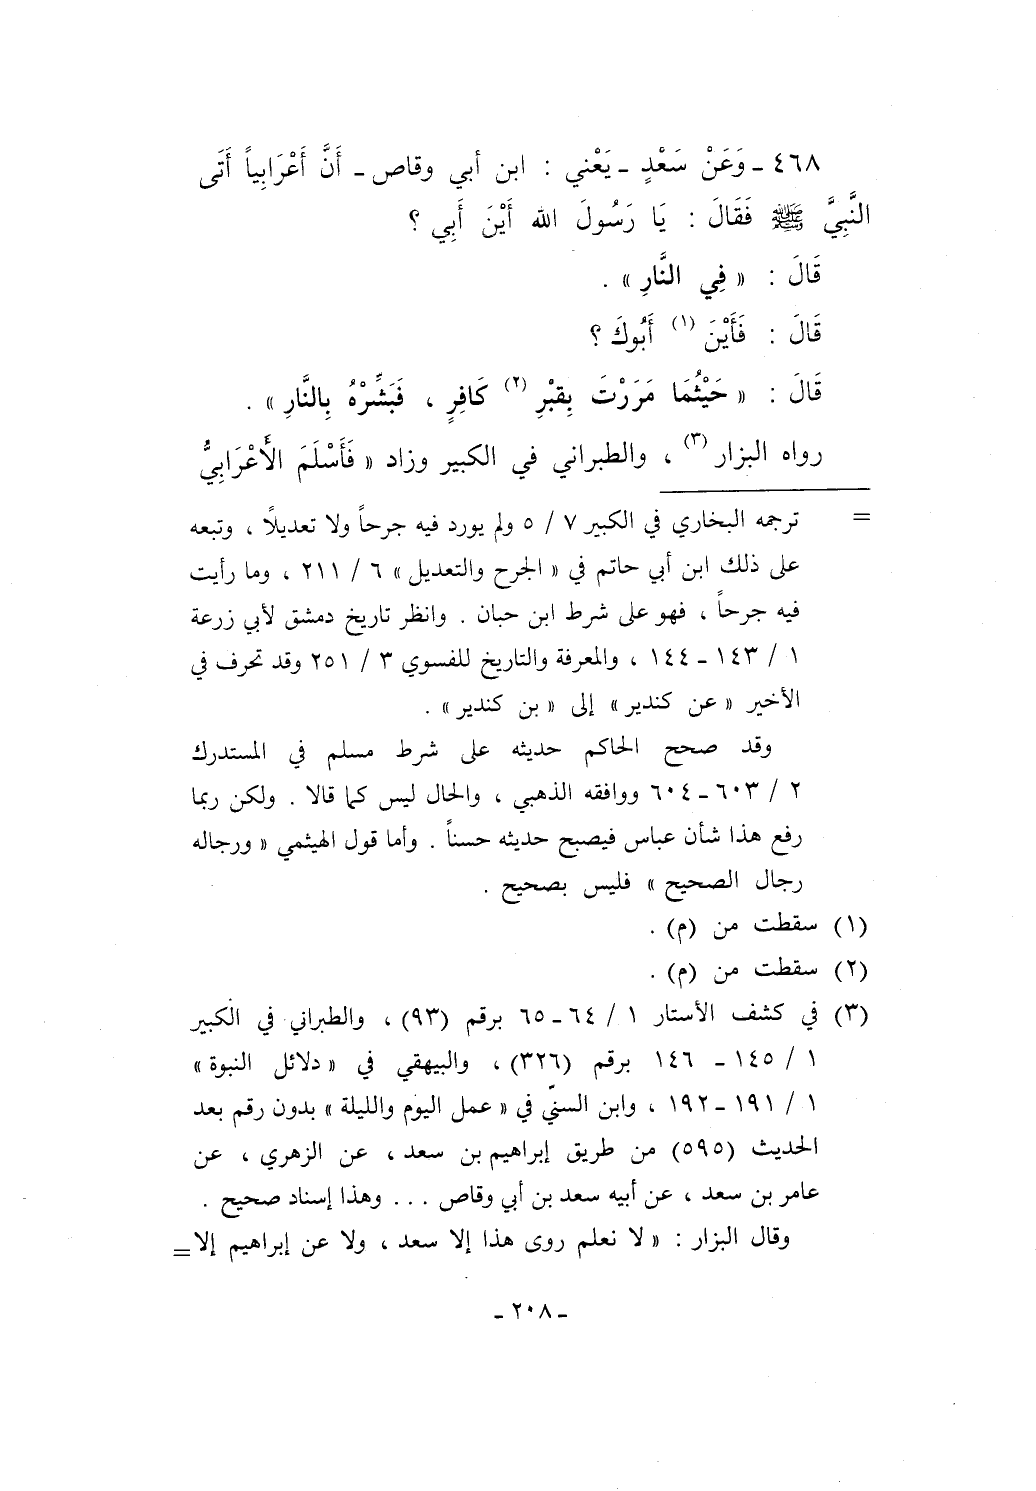 ٤٦٨ ـ وَعَنْ سَعْدٍ ـ يَعْني : ابن أبي وقاص ـ أَنَّ أَعْرَابِياً أَتَى
النَّبِيَّ ﷺ فَقَالَ : يَا رَسُولَ الله أَيْنَ أَبِي ؟
قَالَ : « فِي النَّارِ » .
قَالَ : فَأَيْنَ (١) أَبُوكَ ؟
قَالَ : « حَيْثُمَا مَرَرْتَ بِقَبْرِ (٢) كَافِرٍ ، فَبَشِّرْهُ بِالنَّارِ » .
رواه البزار (٣) ، والطبراني في الكبير وزاد « فَأَسْلَمَ الأَعْرَابِيُّ
= ترجمه البخاري في الكبير ٧ / ٥ ولم يورد فيه جرحاً ولا تعديلاً ، وتبعه
على ذلك ابن أبي حاتم في « الجرح والتعديل » ٦ / ٢١١ ، وما رأيت
فيه جرحاً ، فهو على شرط ابن حبان . وانظر تاريخ دمشق لأبي زرعة
١ / ١٤٣ ـ ١٤٤ ، والمعرفة والتاريخ للفسوي ٣ / ٢٥١ وقد تحرف في
الأخير « عن كندير » إلى « بن كندير » .
وقد صحح الحاكم حديثه على شرط مسلم في المستدرك
٢ / ٦٠٣ ـ ٦٠٤ ووافقه الذهبي ، والحال ليس كما قالا . ولكن ربما
رفع هذا شأن عباس فيصبح حديثه حسناً . وأما قول الهيثمي « ورجاله
رجال الصحيح » فليس بصحيح .
(١) سقطت من (م) .
(٢) سقطت من (م) .
(٣) في كشف الأستار ١ / ٦٤ ـ ٦٥ برقم (٩٣) ، والطبراني في الكبير
١ / ١٤٥ ـ ١٤٦ برقم (٣٢٦) ، والبيهقي في « دلائل النبوة »
١ / ١٩١ ـ ١٩٢ ، وابن السنّي في « عمل اليوم والليلة » بدون رقم بعد
الحديث (٥٩٥) من طريق إبراهيم بن سعد ، عن الزهري ، عن
عامر بن سعد ، عن أبيه سعد بن أبي وقاص . . . وهذا إسناد صحيح .
وقال البزار : « لا نعلم روى هذا إلا سعد ، ولا عن إبراهيم إلا =
ـ ٢٠٨ ـ